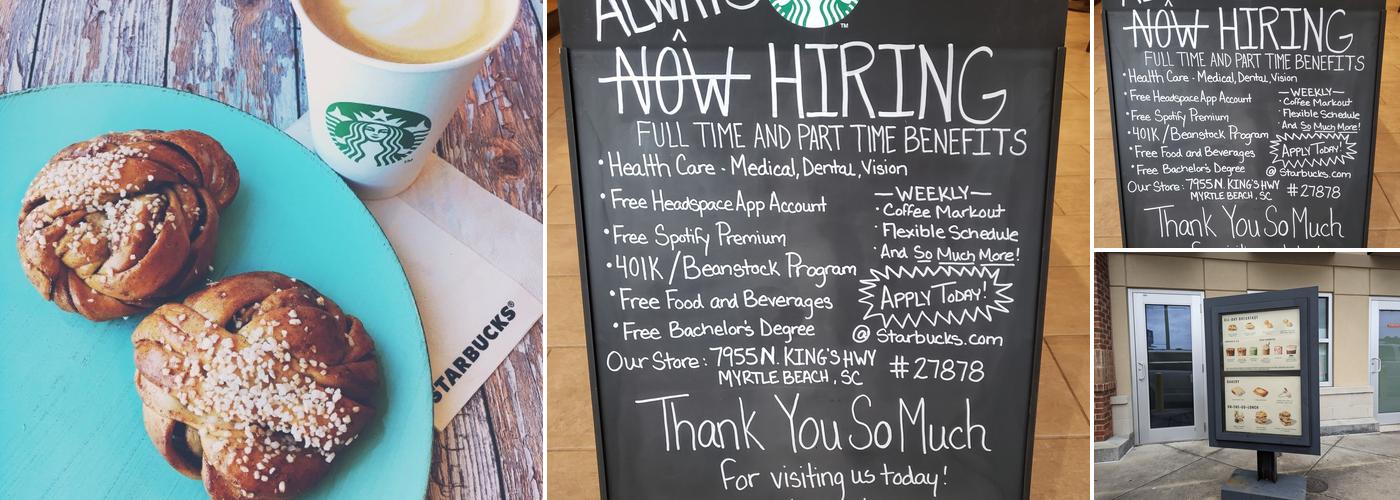 STARBUCKS®
TM
ALWAYS
TM
^
NOW HIRING
FULL TIME AND PART TIME BENEFITS
• Health Care - Medical, Dental, Vision
• Free Headspace App Account
• Free Spotify Premium
• 401K/Beanstock Program
• Free Food and Beverages
• Free Bachelor's Degree
—WEEKLY—
· Coffee Markout
· Flexible Schedule
· And So Much More!
APPLY TODAY!
@ Starbucks.com
Our Store: 7955 N. KING'S HWY
MYRTLE BEACH, SC
#27878
Thank You So Much
For visiting us today!
NOW HIRING
FULL TIME AND PART TIME BENEFITS
• Health Care - Medical, Dental, Vision
• Free Headspace App Account
• Free Spotify Premium
• 401K/Beanstock Program
• Free Food and Beverages
• Free Bachelor's Degree
—WEEKLY—
· Coffee Markout
· Flexible Schedule
· And So Much More!
APPLY TODAY!
@ Starbucks.com
Our Store: 7955 N. KING'S HWY
MYRTLE BEACH, SC
#27878
Thank You So Much
ALL-DAY BREAKFAST
BAKERY
ON-THE-GO-LUNCH